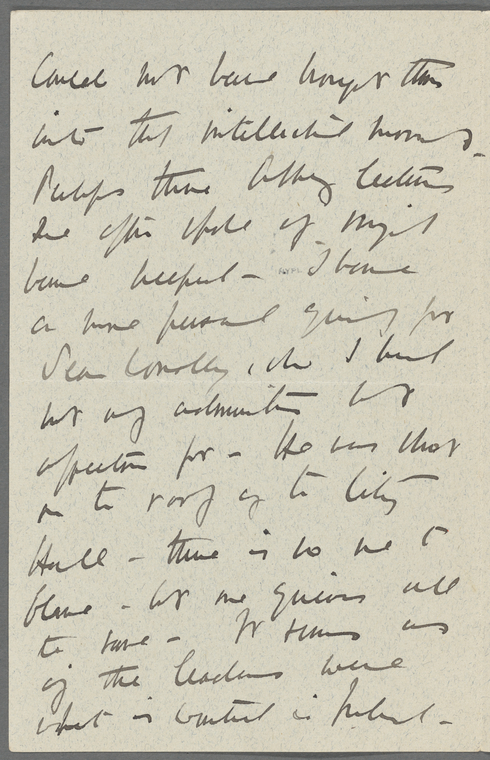 could not have brought them
into the intellectual movement.
Perhaps those Abbey lectures
we often spoke of might
have helped - I have
a more personal grieving for
Sean Connolly, who I had
not only admiration but
affection for - He was shot
on the roof of the City
Hall - there is no one to
blame - but one grieves all
the same - It seems as
if the leaders were
what is wanted in Ireland -